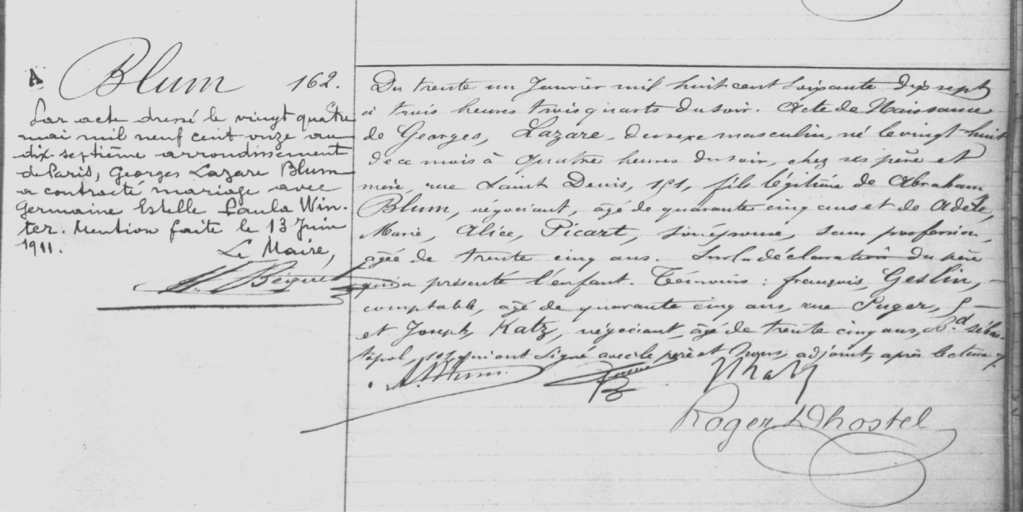 A
Blum 162.
Par acte dressé le vingt quatre
mai mil neuf cent onze au
dix-septième arrondissement
de Paris, Georges Lazare Blum
a contracté mariage avec
Germaine Estelle Paula Win-
ter. Mention faite le 13 Juin
1911. Le Maire,
Du trente un Janvier mil huit cent soixante dix sept
à trois heures trois quarts du soir. Acte de Naissance
de Georges, Lazare, du sexe masculin, né le vingt-huit
de ce mois à quatre heures du soir, chez ses père et
mère, rue Saint Denis, 181, fils légitime de Abraham
Blum, négociant, âgé de quarante cinq ans et de Adèle,
Marie, Alice, Picart, son épouse, sans profession,
âgée de trente cinq ans. Sur la déclaration du père
qui a présenté l'enfant. Témoins : françois, Geslin,
comptable, âgé de quarante cinq ans, rue Puger,
et Joseph, Katz, négociant, âgé de trente cinq ans, Bd. Sébas-
topol, qui ont signé avec le père et Nous, adjoint, après lecture.
A. Blum
J Katz
Roger Dhostel